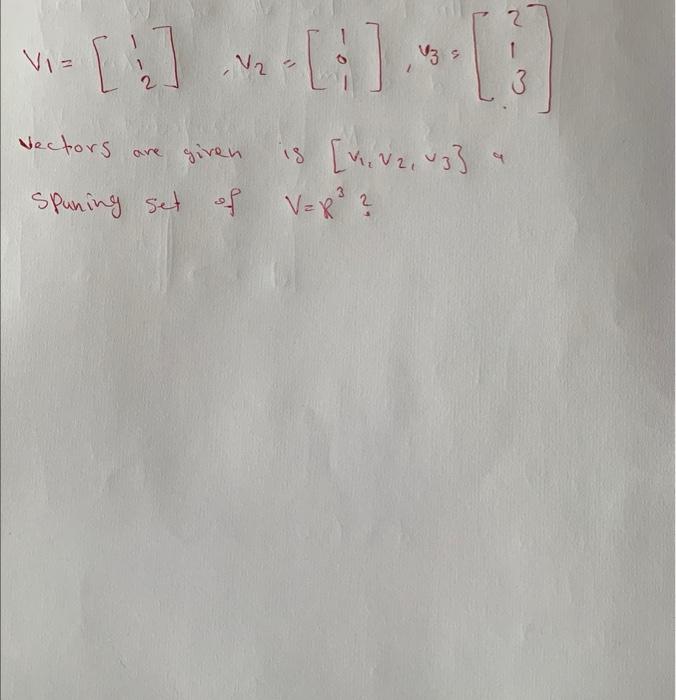 V1 = [ 1 1 2 ] , V2 = [ 1 0 1 ] , V3 = [ 2 1 3 ]
Vectors are given is [V1, V2, V3} a
Spuning set of V=R³ ?